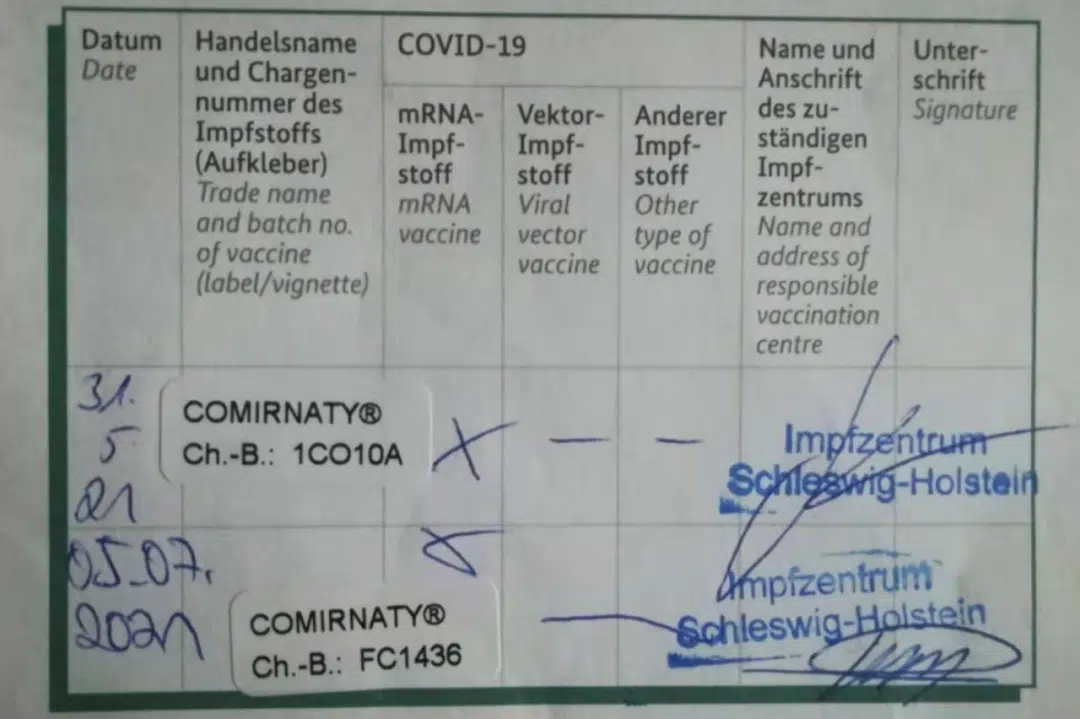 Datum
Date
Handelsname
und Chargen-
nummer des
Impfstoffs
(Aufkleber)
Trade name
and batch no.
of vaccine
(label/vignette)
COVID-19
mRNA-
Impf-
stoff
mRNA
vaccine
Vektor-
Impf-
stoff
Viral
vector
vaccine
Anderer
Impf-
stoff
Other
type of
vaccine
Name und
Anschrift
des zu-
ständigen
Impf-
zentrums
Name and
address of
responsible
vaccination
centre
Unter-
schrift
Signature
31.
5
21
COMIRNATY®
Ch.-B.: 1CO10A
X — —
Impfzentrum
Schleswig-Holstein
05.07.
2021
COMIRNATY®
Ch.-B.: FC1436
X —
Impfzentrum
Schleswig-Holstein